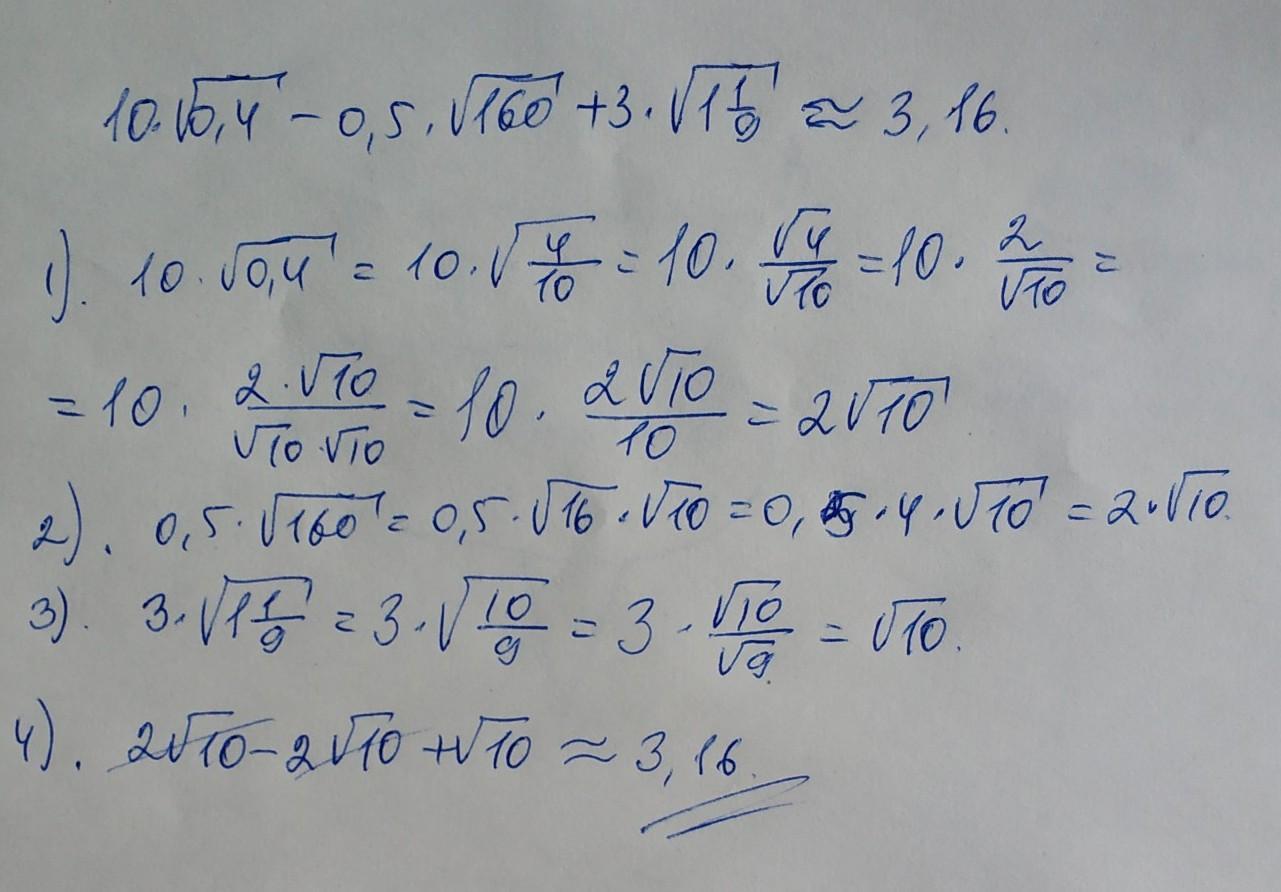 10·√0,4 − 0,5·√160 + 3·√1 1/9 ≈ 3,16.
1). 10·√0,4 = 10·√4/10 = 10·√4/√10 = 10·2/√10 =
= 10·2·√10/√10·√10 = 10·2√10/10 = 2√10
2). 0,5·√160 = 0,5·√16·√10 = 0,5·4·√10 = 2·√10.
3). 3·√1 1/9 = 3·√10/9 = 3·√10/√9 = √10.
4). 2√10 − 2√10 + √10 ≈ 3,16.